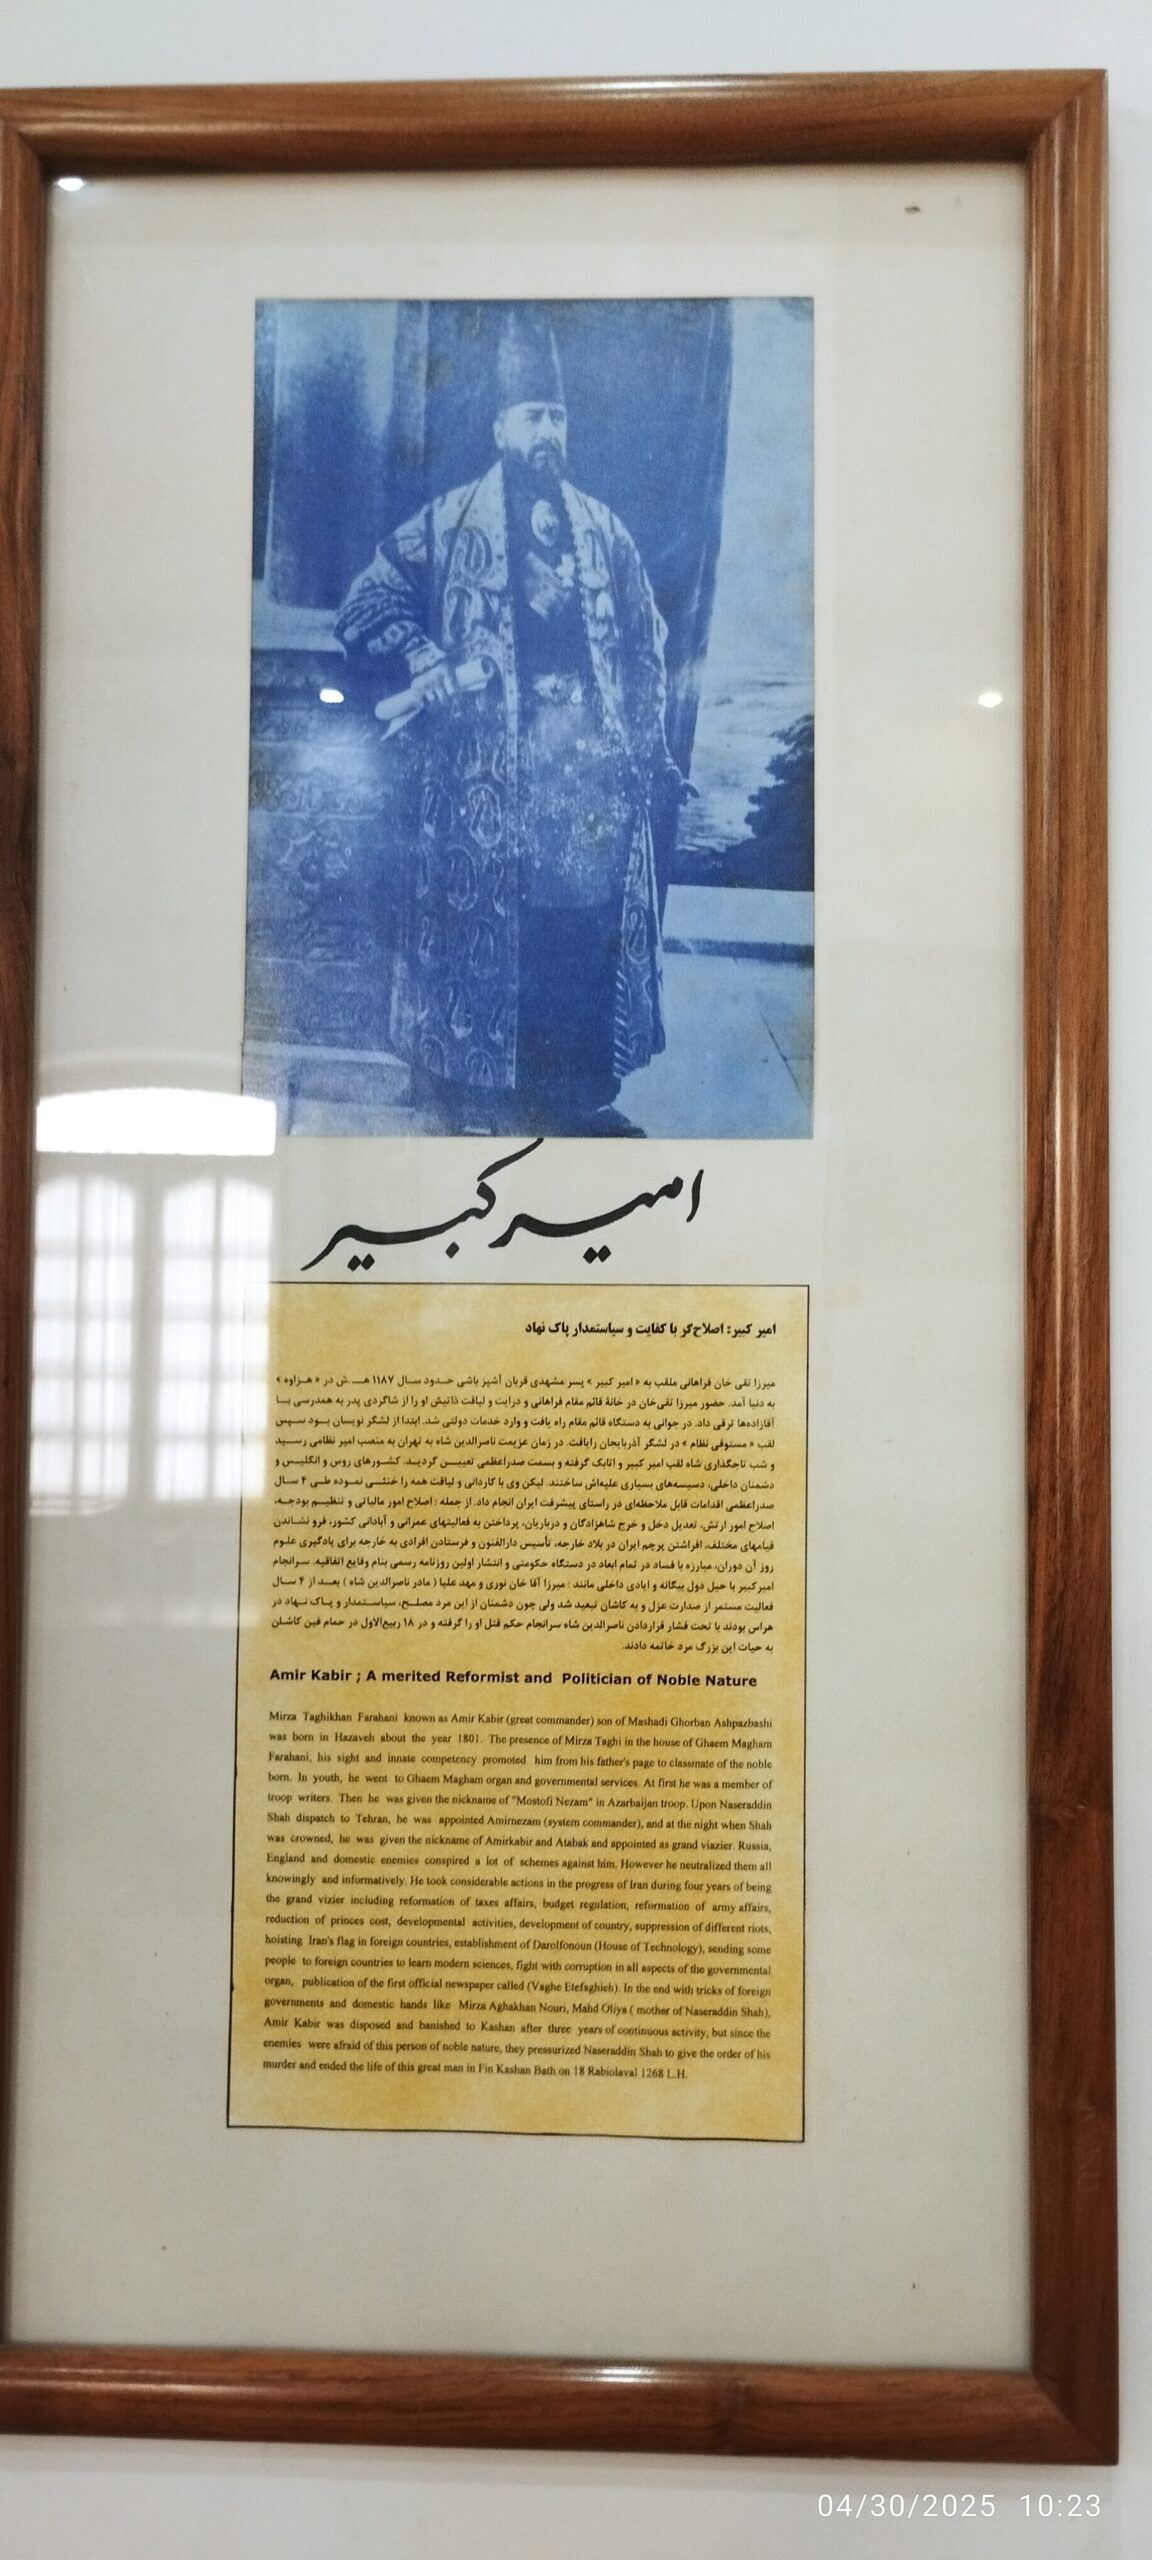 امیر کبیر
امیر کبیر: اصلاح‌گر با کفایت و سیاستمدار پاک نهاد
میرزا تقی خان فراهانی ملقب به « امیر کبیر » پسر مشهدی قربان آشپز باشی حدود سال ۱۱۸۷ هـ.ش در « هزاوه »
به دنیا آمد. حضور میرزا تقی‌خان در خانۀ قائم مقام فراهانی و درایت و لیاقت ذاتیش او را از شاگردی پدر به همدرسی با
آقازاده‌ها ترقی داد. در جوانی به دستگاه قائم مقام راه یافت و وارد خدمات دولتی شد. ابتدا از لشگر نویسان بود سپس
لقب « مستوفی نظام » در لشگر آذربایجان رایافت. در زمان عزیمت ناصرالدین شاه به تهران به منصب امیر نظامی رسید
و شب تاجگذاری شاه لقب امیر کبیر و اتابک گرفته و بسمت صدراعظمی تعیین گردید. کشورهای روس و انگلیس و
دشمنان داخلی، دسیسه‌های بسیاری علیه‌اش ساختند. لیکن وی با کاردانی و لیاقت همه را خنثی نموده طی ۴ سال
صدراعظمی اقدامات قابل ملاحظه‌ای در راستای پیشرفت ایران انجام داد. از جمله : اصلاح امور مالیاتی و تنظیم بودجه،
اصلاح امور ارتش، تعدیل دخل و خرج شاهزادگان و درباریان، پرداختن به فعالیتهای عمرانی و آبادانی کشور، فرو نشاندن
قیامهای مختلف، افراشتن پرچم ایران در بلاد خارجه، تأسیس دارالفنون و فرستادن افرادی به خارجه برای یادگیری علوم
روز آن دوران، مبارزه با فساد در تمام ابعاد در دستگاه حکومتی و انتشار اولین روزنامه رسمی بنام وقایع اتفاقیه. سرانجام
امیرکبیر با حیل دول بیگانه و ایادی داخلی مانند : میرزا آقا خان نوری و مهد علیا ( مادر ناصرالدین شاه ) بعد از ۴ سال
فعالیت مستمر از صدارت عزل و به کاشان تبعید شد ولی چون دشمنان از این مرد مصلح، سیاستمدار و پاک نهاد در
هراس بودند با تحت فشار قراردادن ناصرالدین شاه سرانجام حکم قتل او را گرفته و در ۱۸ ربیع‌الاول در حمام فین کاشان
به حیات این بزرگ مرد خاتمه دادند.
Amir Kabir ; A merited Reformist and Politician of Noble Nature
Mirza Taghikhan Farahani known as Amir Kabir (great commander) son of Mashadi Ghorban Ashpazbashi
was born in Hazaveh about the year 1801. The presence of Mirza Taghi in the house of Ghaem Magham
Farahani, his sight and innate competency promoted him from his father's page to classmate of the noble
born. In youth, he went to Ghaem Magham organ and governmental services. At first he was a member of
troop writers. Then he was given the nickname of "Mostofi Nezam" in Azarbaijan troop. Upon Naseraddin
Shah dispatch to Tehran, he was appointed Amirnezam (system commander), and at the night when Shah
was crowned, he was given the nickname of Amirkabir and Atabak and appointed as grand viazier. Russia,
England and domestic enemies conspired a lot of schemes against him. However he neutralized them all
knowingly and informatively. He took considerable actions in the progress of Iran during four years of being
the grand vizier including reformation of taxes affairs, budget regulation, reformation of army affairs,
reduction of princes cost, developmental activities, development of country, suppression of different riots,
hoisting Iran's flag in foreign countries, establishment of Darolfonoun (House of Technology), sending some
people to foreign countries to learn modern sciences, fight with corruption in all aspects of the governmental
organ, publication of the first official newspaper called (Vaghe Etefaghieh). In the end with tricks of foreign
governments and domestic hands like Mirza Aghakhan Nouri, Mahd Oliya ( mother of Naseraddin Shah),
Amir Kabir was disposed and banished to Kashan after three years of continuous activity, but since the
enemies were afraid of this person of noble nature, they pressurized Naseraddin Shah to give the order of his
murder and ended the life of this great man in Fin Kashan Bath on 18 Rabiolaval 1268 L.H.
04/30/2025 10:23